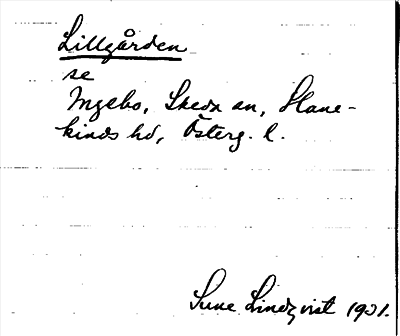 Lillgården
se
Ingebo, Skeda sn, Hane-
kinds hd, Österg. l.
Sune Lindqvist 1931.